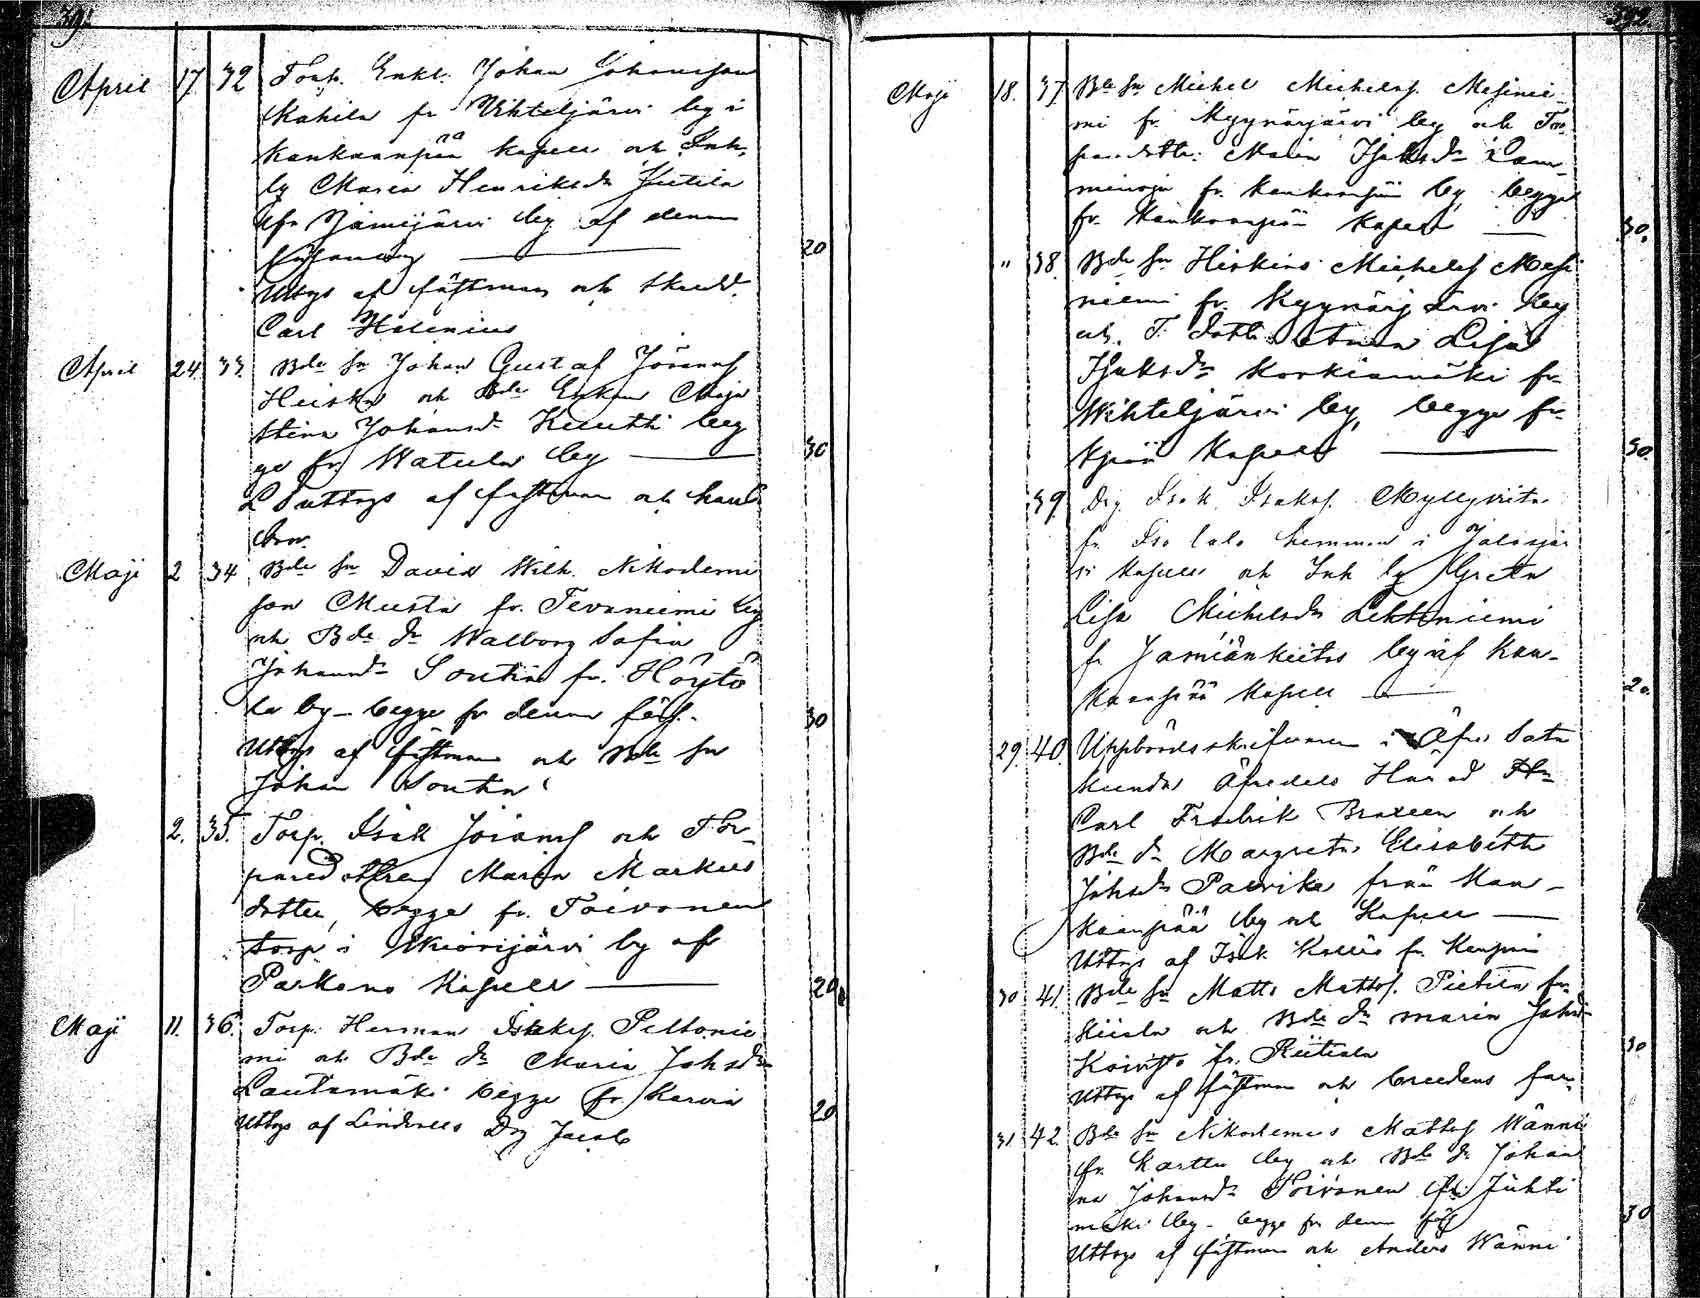 391
April 17. 32 Torp. Enkl. Johan Johansson
Kahila fr Vihteljärvi by i
Kankaanpää kapell och Inh.
lg Maria Henriksdr Jutila
ifr Jämijärvi by af denna
församling — 20
Uttogs af fästman och skredd.
Carl Helenius
April 24. 33. Bde Sn Johan Gustaf Jöransf
Heiska och Bde Enkan Maja
Stina Johansdr Knutti beg
ge fr Watula by — 30
uttogs af fästman och
Maji 2 34 Bde Sn David Wilh. Nikodemi
son Musta fr. Tevaniemi by
och Bde dr Walborg Sofia
Johansdr Sontin fr. Höytö
la by — begge fr denna förs. 30
Uttogs af fästman och Bde Sn
Johan Sontin
2. 35. Torp. Isak Joransf och Tor-
paredottren Maria Markus
dotter, begge fr. Toivonen
torp i by af
Parkano Kapell — 20
Maji 11. 36. Torp. Herman Isaksf. Peltonie
mi och Bde dr Maria Johsdr
Lautamäki begge fr Karvia 20
Uttogs af Lindroos Drg Jacob
392
Maji 18. 37. Bde Sn Michel Michelsf. Mesinie-
mi fr. Kyynärjärvi by och Tor-
paredottr. Maria Isaksdr Lam-
minoja fr. Kankaanpää by, begge
fr. Kankaanpää Kapell — 30.
" 38. Bde Sn Hiskias Michelsf Mesi
niemi fr. Kyynärjärvi by
och T. dottr. Anna Lisa
Isaksdr Korkiamäki fr.
Wihteljärvi by, begge fr.
Kpää Kapell — 30.
39. Drg Isak Isaksf. Myllyviita
fr. Iso lalo hemman i Jalasjär
vi Kapell och Inh lg Greta
Lisa Michelsdr Lehtiniemi
fr Jamiänkeitos by af Kan-
kaanpää Kapell — 20.
29. 40. Uppbördsskrifvaren i Öfre Sata
kunda Öfredels Härad Hr
Carl Fredrik Braxen och
Bde dr Margreta Elisabeth
Johsdr Paavika från Kan-
kaanpää by och Kapell —
Uttogs af Isak Kallio fr. Kanpää
30 41. Bde Sn Matts Mattsf. Pietila fr
Niisla och Bde dr Maria Johsdr
Koivisto fr. Riitiala 30
Uttogs af fästman och brudens far
31 42 Bde Sn Nikodemus Mattsf Wänni
fr. Karttu by och Bde dr Johan
na Johansdr Toivonen fr. Juhti
mäki by — begge fr denna förs 30
Uttogs af fästman och Anders Wänni